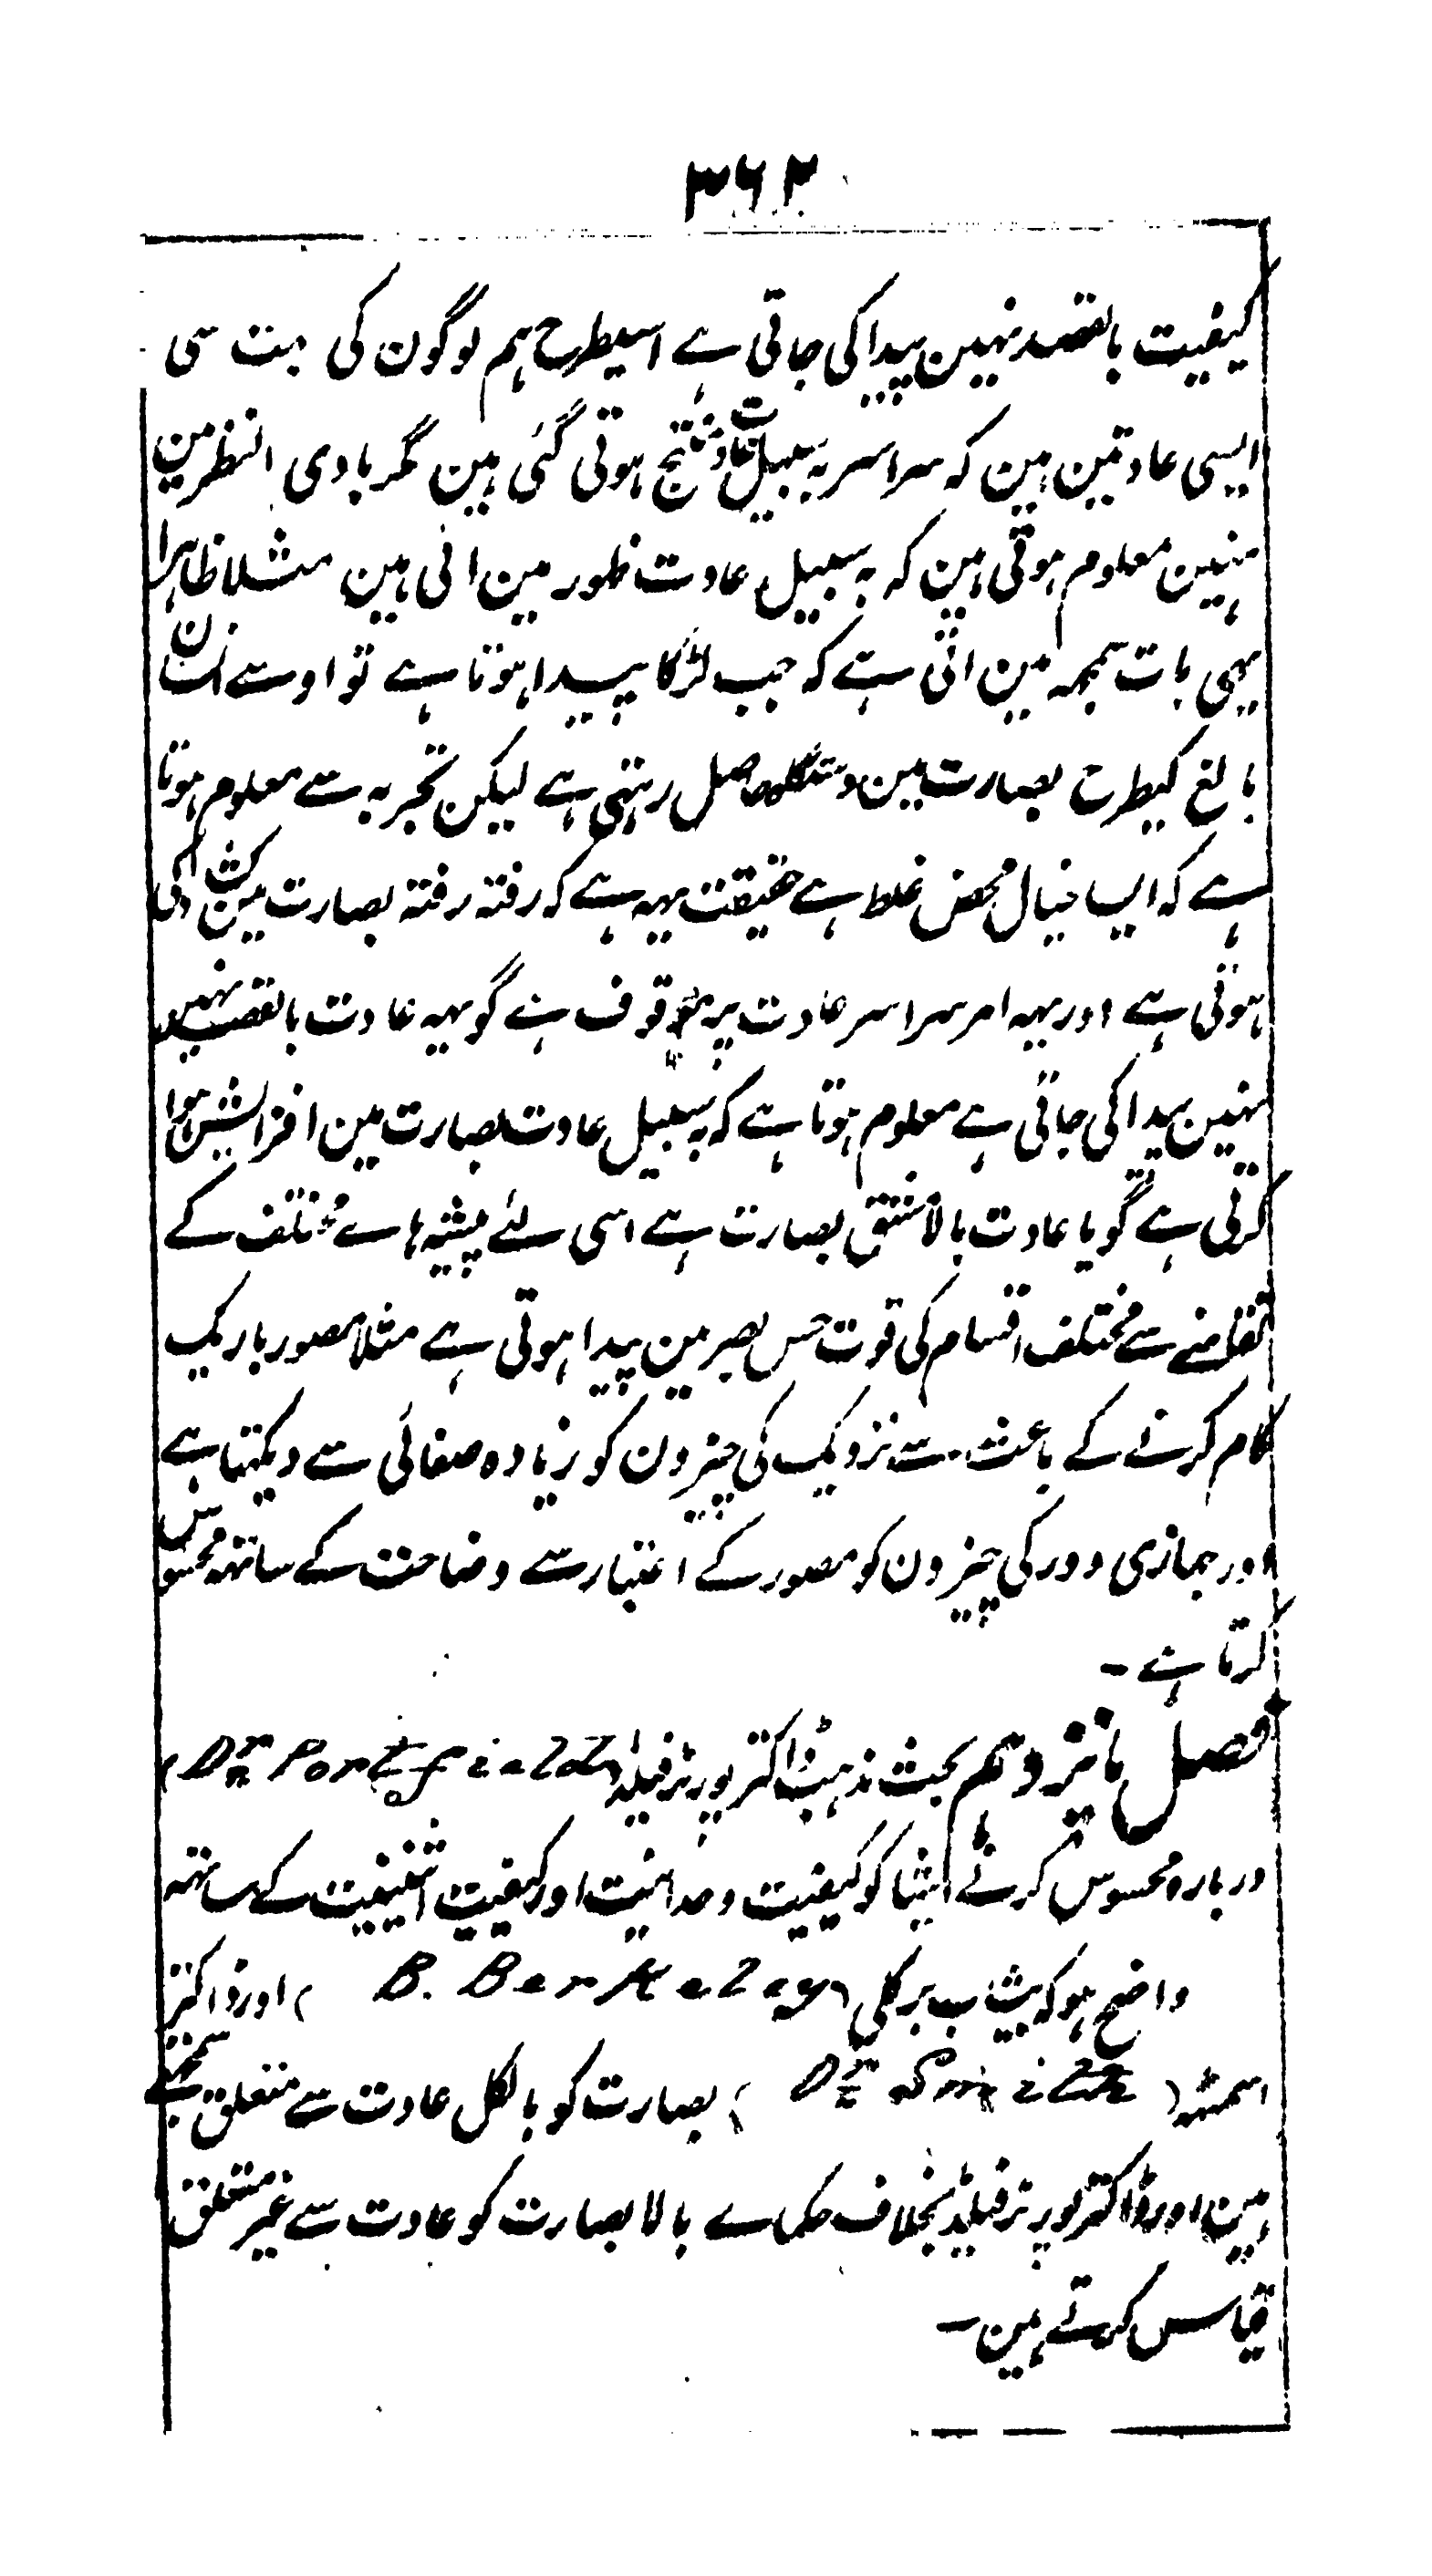 ۳۶۲
کیفیت بالقصد نہین پیدا کی جاتی ہے اسیطرح ہم لوگون کی بہت سی
ایسی عادتین ہین کہ سراسر بہ سبیل عادت منتج ہوتی گئی ہین مگر بادی النظر مین
نہین معلوم ہوتی ہین کہ بہ سبیل عادت ظہور مین آئی ہین مثلا ظاہرا
یہی بات سمجہ مین آتی ہے کہ جب لڑکا پیدا ہوتا ہے تو اوسے انسان
بالغ کیطرح بصارت مین دستگاہ حاصل رہتی ہے لیکن تجربہ سے معلوم ہوتا
ہے کہ ایسا خیال محض غلط ہے حقیقت یہہ ہے کہ رفتہ رفتہ بصارت مین
ہوتی ہے اور یہہ امر سراسر عادت پر موقوف ہے گو یہہ عادت بالقصد نہین
نہین پیدا کی جاتی ہے معلوم ہوتا ہے کہ بہ سبیل عادت بصارت مین افزایش ہوا
کرتی ہے گویا عادت بالا مشق بصارت ہے اسی لئے پیشہ ہاے مختلف کے
تقاضے سے مختلف اقسام کی قوت حس بصر مین پیدا ہوتی ہے مثلا مصور باریک
کام کرنے کے باعث سے نزدیک کی چیزون کو زیادہ صفائی سے دیکہتا ہے
اور جہازی دور کی چیزون کو مصور کے اعتبار سے وضاحت کے ساتہہ محسوس
کرتا ہے ۔
فصل پانزدہم بحث مذہب ڈاکتر پورٹرفیلڈ (Dr Porterfield)
دربارہ محسوس کرنے اشیا کو کیفیت وحدانیت اور کیفیت اثنینیت کے ساتہہ
واضح ہو کہ بشاپ برکلی (B. Berkeley) اور ڈاکتر
اسمتہہ (Dr Smith) بصارت کو بالکل عادت سے متعلق سمجہتے
ہین اور ڈاکتر پورٹرفیلڈ بخلاف حکماے بالا بصارت کو عادت سے غیر متعلق
قیاس کرتے ہین ۔